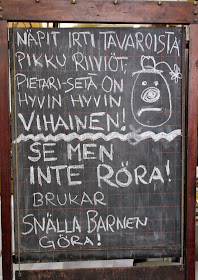 NÄPIT IRTI TAVAROISTA
PIKKU RIIVIÖT,
PIETARI-SETÄ ON
HYVIN HYVIN
VIHAINEN!
SE MEN
INTE RÖRA!
BRUKAR
SNÄLLA BARNEN
GÖRA!